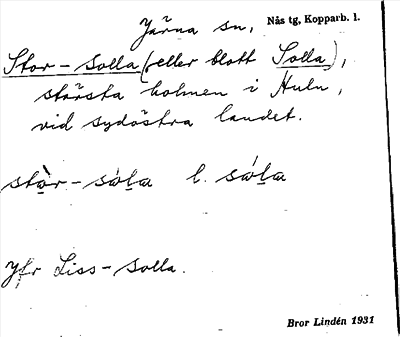 Järna sn, Nås tg, Kopparb. l.
Stor-Solla (eller blott Solla),
största holmen i Huln,
vid sydöstra landet.
stòr-sóla l. sóla
Jfr Liss-Solla.
Bror Lindén 1931